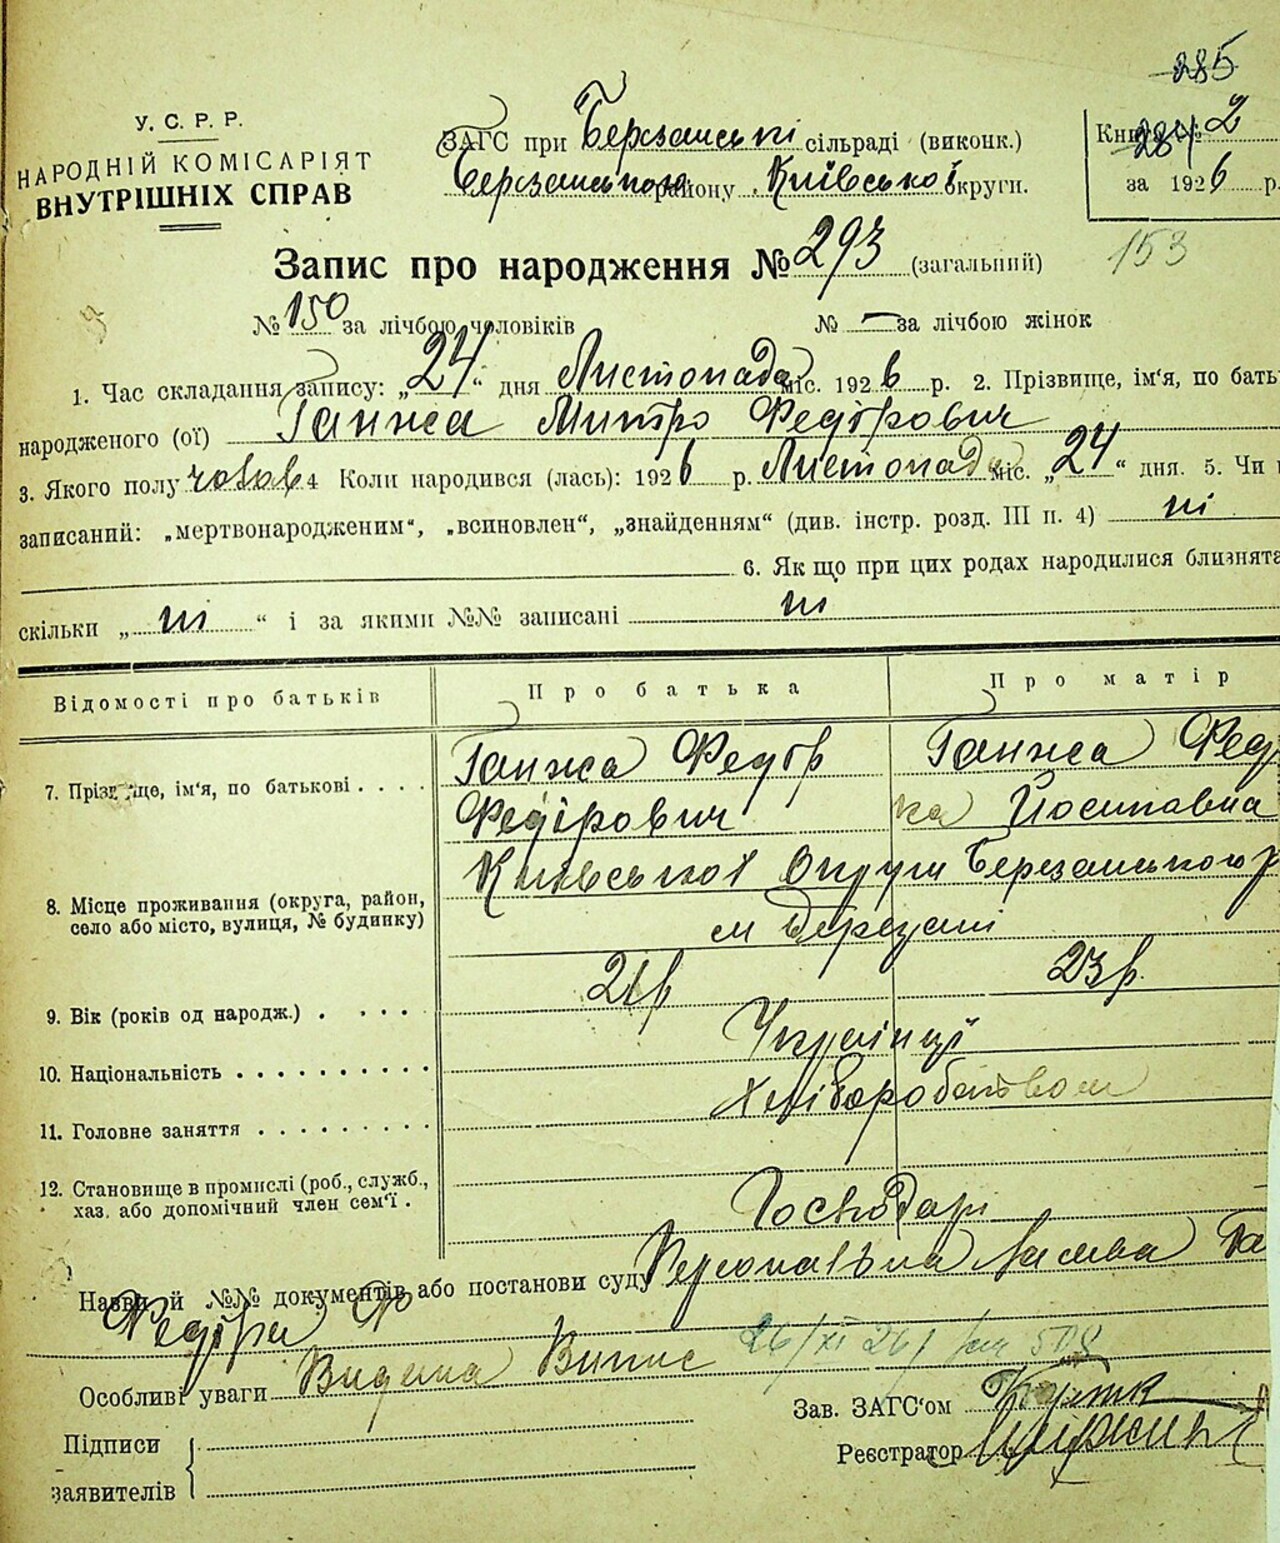 285
У. С. Р. Р.
НАРОДНІЙ КОМІСАРІЯТ
ВНУТРІШНІХ СПРАВ
ЗАГС при Березанські сільраді (виконк.)
Березанського району Київської округи.
Книга № 2
284
за 1926 р.
Запис про народження № 293 (загальний)
153
№ 150 за лічбою чоловіків № — за лічбою жінок
1. Час складання запису: „24“ дня Листопада міс. 1926 р. 2. Прізвище, ім‘я, по бать
народженого (ої) Ганжа Митро Федірович
3. Якого полу чолов 4 Коли народився (лась): 1926 р. Листопада міс. „24“ дня. 5. Чи
записаний: „мертвонародженим“, „всиновлен“, „знайденням“ (див. інстр. розд. III п. 4) ні
6. Як що при цих родах народилися близнята
скільки „ні“ і за якими №№ записані ні
Відомості про батьків Про батька Про матір
7. Прізвище, ім‘я, по батькові . . . . Ганжа Федір Ганжа Фед
Федірович ка Йосипавна
8. Місце проживання (округа, район, село або місто, вулиця, № будинку) Київської Округи Березанського р
м Березані
9. Вік (років од народж.) . . . . 21р 23р.
10. Національність . . . . . . . . . . Українці
11. Головне заняття . . . . . . . . . Хліборобством
12. Становище в промислі (роб., служб., хаз. або допомічний член сем‘ї . Господарі
Назви й №№ документів або постанови суду Персональна Заява Га
Федіра Ф
Особливі уваги Видана Випис 26/XI 26 508
Зав. ЗАГС‘ом
Підписи
заявителів
Реєстратор